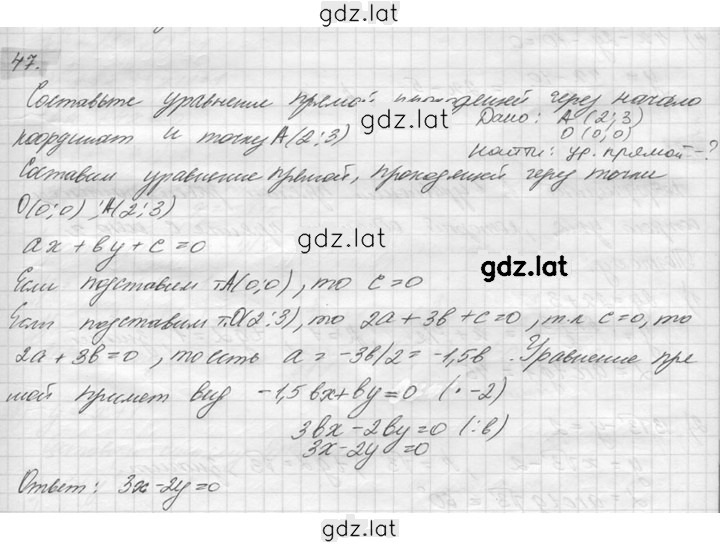 gdz.lat
47.
Составьте уравнение прямой, проходящей через начало
координат и точку А(2;3)
Дано: А (2;3)
О (0;0)
Найти: ур. прямой-?
Составим уравнение прямой, проходящей через точки
О(0;0) ; А(2;3)
ax + by + c = 0
Если подставим т.А(0;0), то c = 0
Если подставим т.О(2;3), то 2a + 3b + c = 0, т.к c = 0, то
2a + 3b = 0, то есть a = -3b/2 = -1,5b. Уравнение пря
мой примет вид -1,5bx + by = 0 (· -2)
3bx - 2by = 0 (:b)
3x - 2y = 0
Ответ: 3x - 2y = 0
gdz.lat
gdz.lat
gdz.lat
gdz.lat